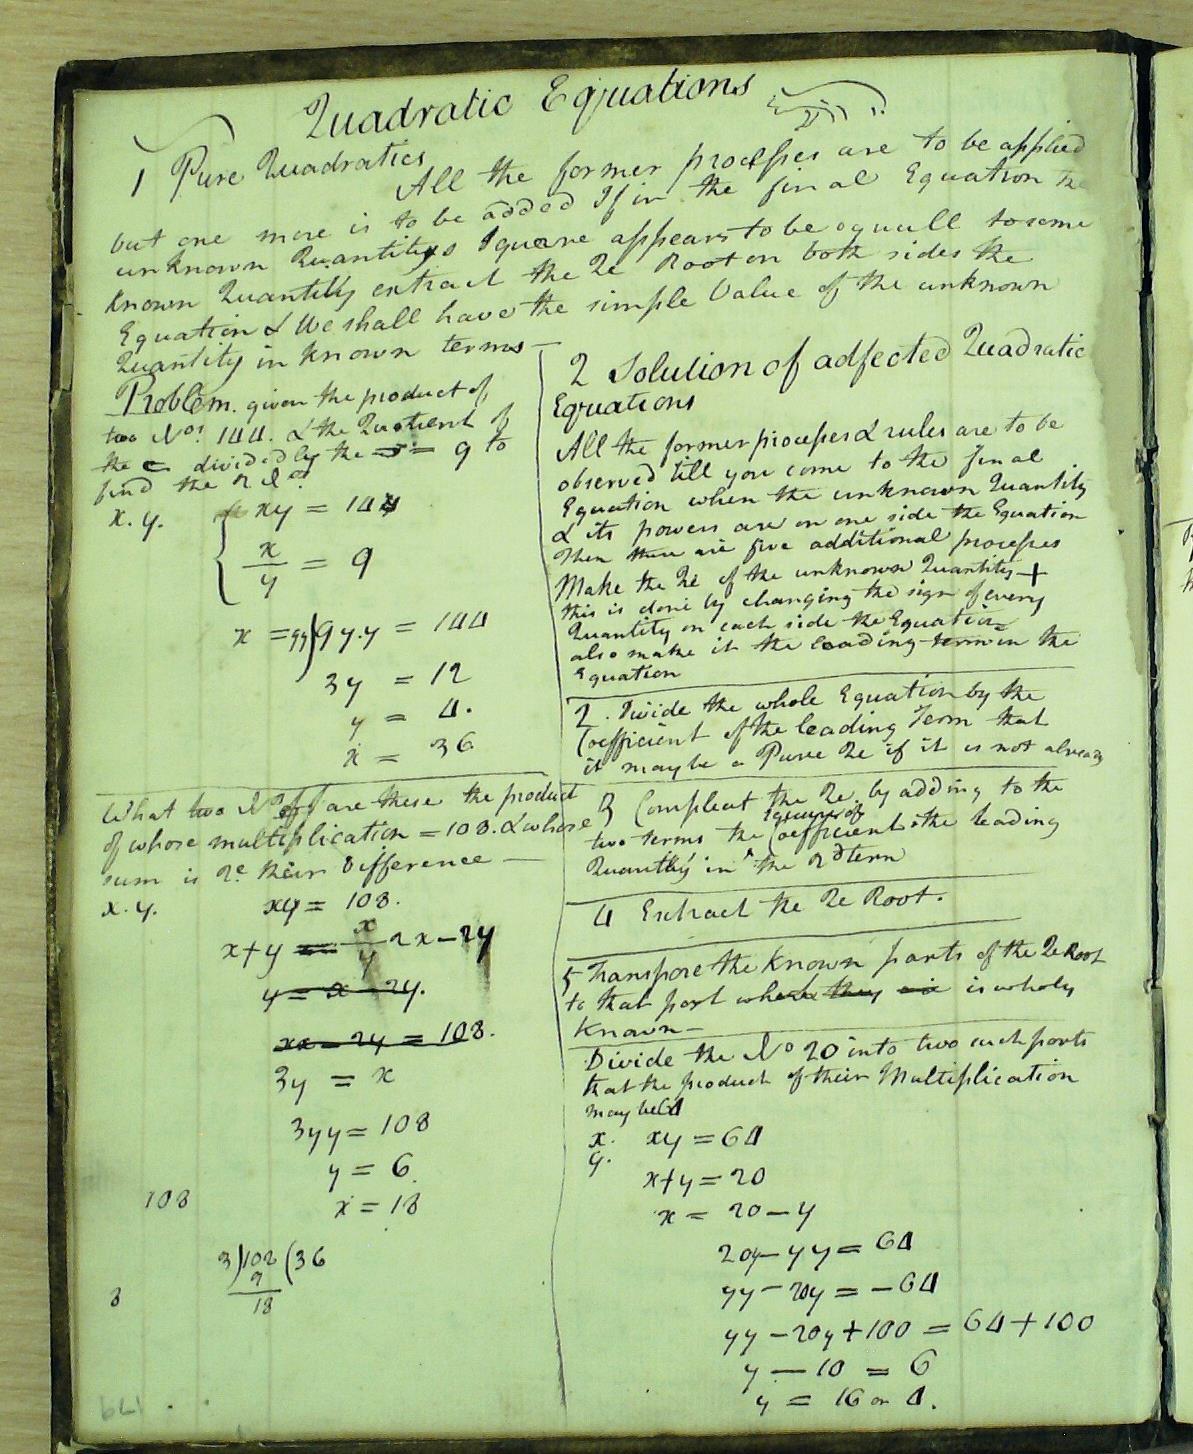 Quadratic Equations
1 Pure Quadratics
All the former processes are to be applied
but one more is to be added If in the final Equation the
unknown Quantitys Square appears to be equall to some
Known Quantitty extract the Qe Root on both sides the
Equation & We shall have the simple Value of the unknown
Quantity in known terms
Problem. given the product of
two Nos. 144. & the Quotient of
the divided by the = 9 to
find the
x. y. xy = 144
x/y = 9
x = 9y) 9y.y = 144
3y = 12
y = 4.
x = 36
What two Nos are these the product
of whose multiplication = 108. & whose
sum is 2e their Difference
x. y. xy = 108.
x+y = x/y 2x-2y
y = x 2y.
xx - 2y = 108.
3y = x
3yy = 108
y = 6.
x = 18
108
3)108(36
9
18
8
2 Solution of adfected Quadratic
Equations
All the former processes & rules are to be
observed till you come to the final
Equation when the unknown Quantity
& its powers are on one side the Equation
Then there are five additional processes
Make the Qe of the unknown Quantity +
this is done by changing the sign of every
Quantity on each side the Equation
also make it the leading term in the
Equation
2. Divide the whole Equation by the
Coefficient of the leading Term that
it may be a Pure Qe if it is not already
3 Compleat the Qe. by adding to the
two terms the Square of Coefficient the leading
Quantity in the 2d term
4 Extract the Qe Root.
5 Transpose the known parts of the Qe Root
to that part where they is wholy
Known
Divide the No 20 into two such parts
that the product of their Multiplication
may be 64
x. xy = 64
y.
x+y = 20
x = 20 - y
20y - yy = 64
yy - 20y = -64
yy - 20y + 100 = 64 + 100
y - 10 = 6
y = 16 or 4.